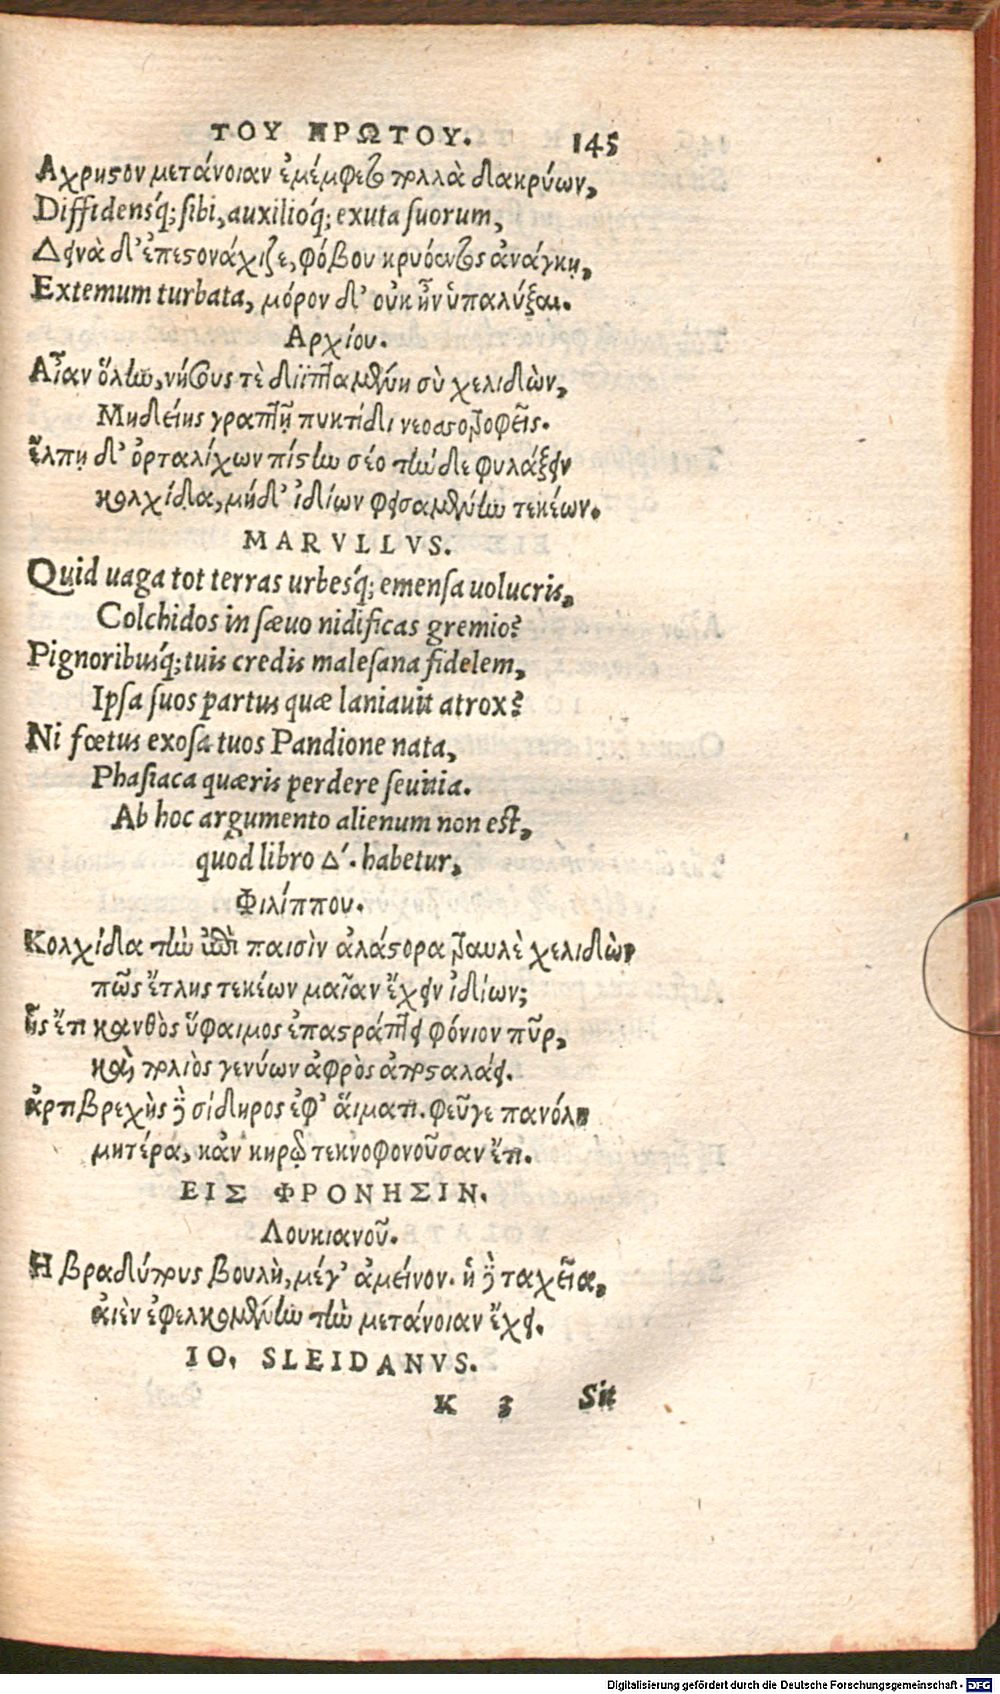 ΤΟΥ ΠΡΩΤΟΥ. 145
Αχρηστον μετάνοιαν ἐμέμφετο πολλὰ δακρύων,
Diffidensq́; sibi, auxilioq́; exuta suorum,
Δεινὰ δ' ἐπεστονάχιζε, φόβου κρυόεντος ἀνάγκη,
Extemum turbata, μόρον δ' οὐκ ἦν ὑπαλύξαι.
Αρχίου.
Αἶαν ὅλην, νήσους τὲ διϊπταμένη σὺ χελιδὼν,
Μηδείης γραπτῇ πυκτίδι νεοσσοτροφεῖς.
ἔλπῃ δ' ὀρταλίχων πίστιν σέο τήνδε φυλάξειν
κολχίδα, μήδ' ἰδίων φεισαμένην τεκέων.
MARVLLVS.
Quid uaga tot terras urbesq́; emensa uolucris,
Colchidos in sæuo nidificas gremio?
Pignoribusq́; tuis credis malesana fidelem,
Ipsa suos partus quæ laniauit atrox?
Ni fœtus exosa tuos Pandione nata,
Phasiaca quæris perdere seuitia.
Ab hoc argumento alienum non est,
quod libro Δ'. habetur,
Φιλίππου.
Κολχίδα τὴν ἐπὶ παισὶν ἀλάστορα τραυλὲ χελιδὼν
πῶς ἔτλης τεκέων μαῖαν ἔχειν ἰδίων;
ἧς ἔτι κανθὸς ὕφαιμος ἐπαστράπτει φόνιον πῦρ,
καὶ πολιὸς γενύων ἀφρὸς ἀποσταλάει.
ἀρτιβρεχὴς δὲ σίδηρος ἐφ' ἅιματι. φεῦγε πανόλη
μητέρα, κἀν κηρῷ τεκνοφονοῦσαν ἔτι.
ΕΙΣ ΦΡΟΝΗΣΙΝ.
Λουκιανοῦ.
Η βραδύπους βουλὴ, μέγ' ἀμείνον. ἡ δὲ ταχεῖα,
ἀιὲν ἐφελκομένην τὴν μετάνοιαν ἔχει.
IO. SLEIDANVS.
K 3 Sit
Digitalisierung gefördert durch die Deutsche Forschungsgemeinschaft - DFG